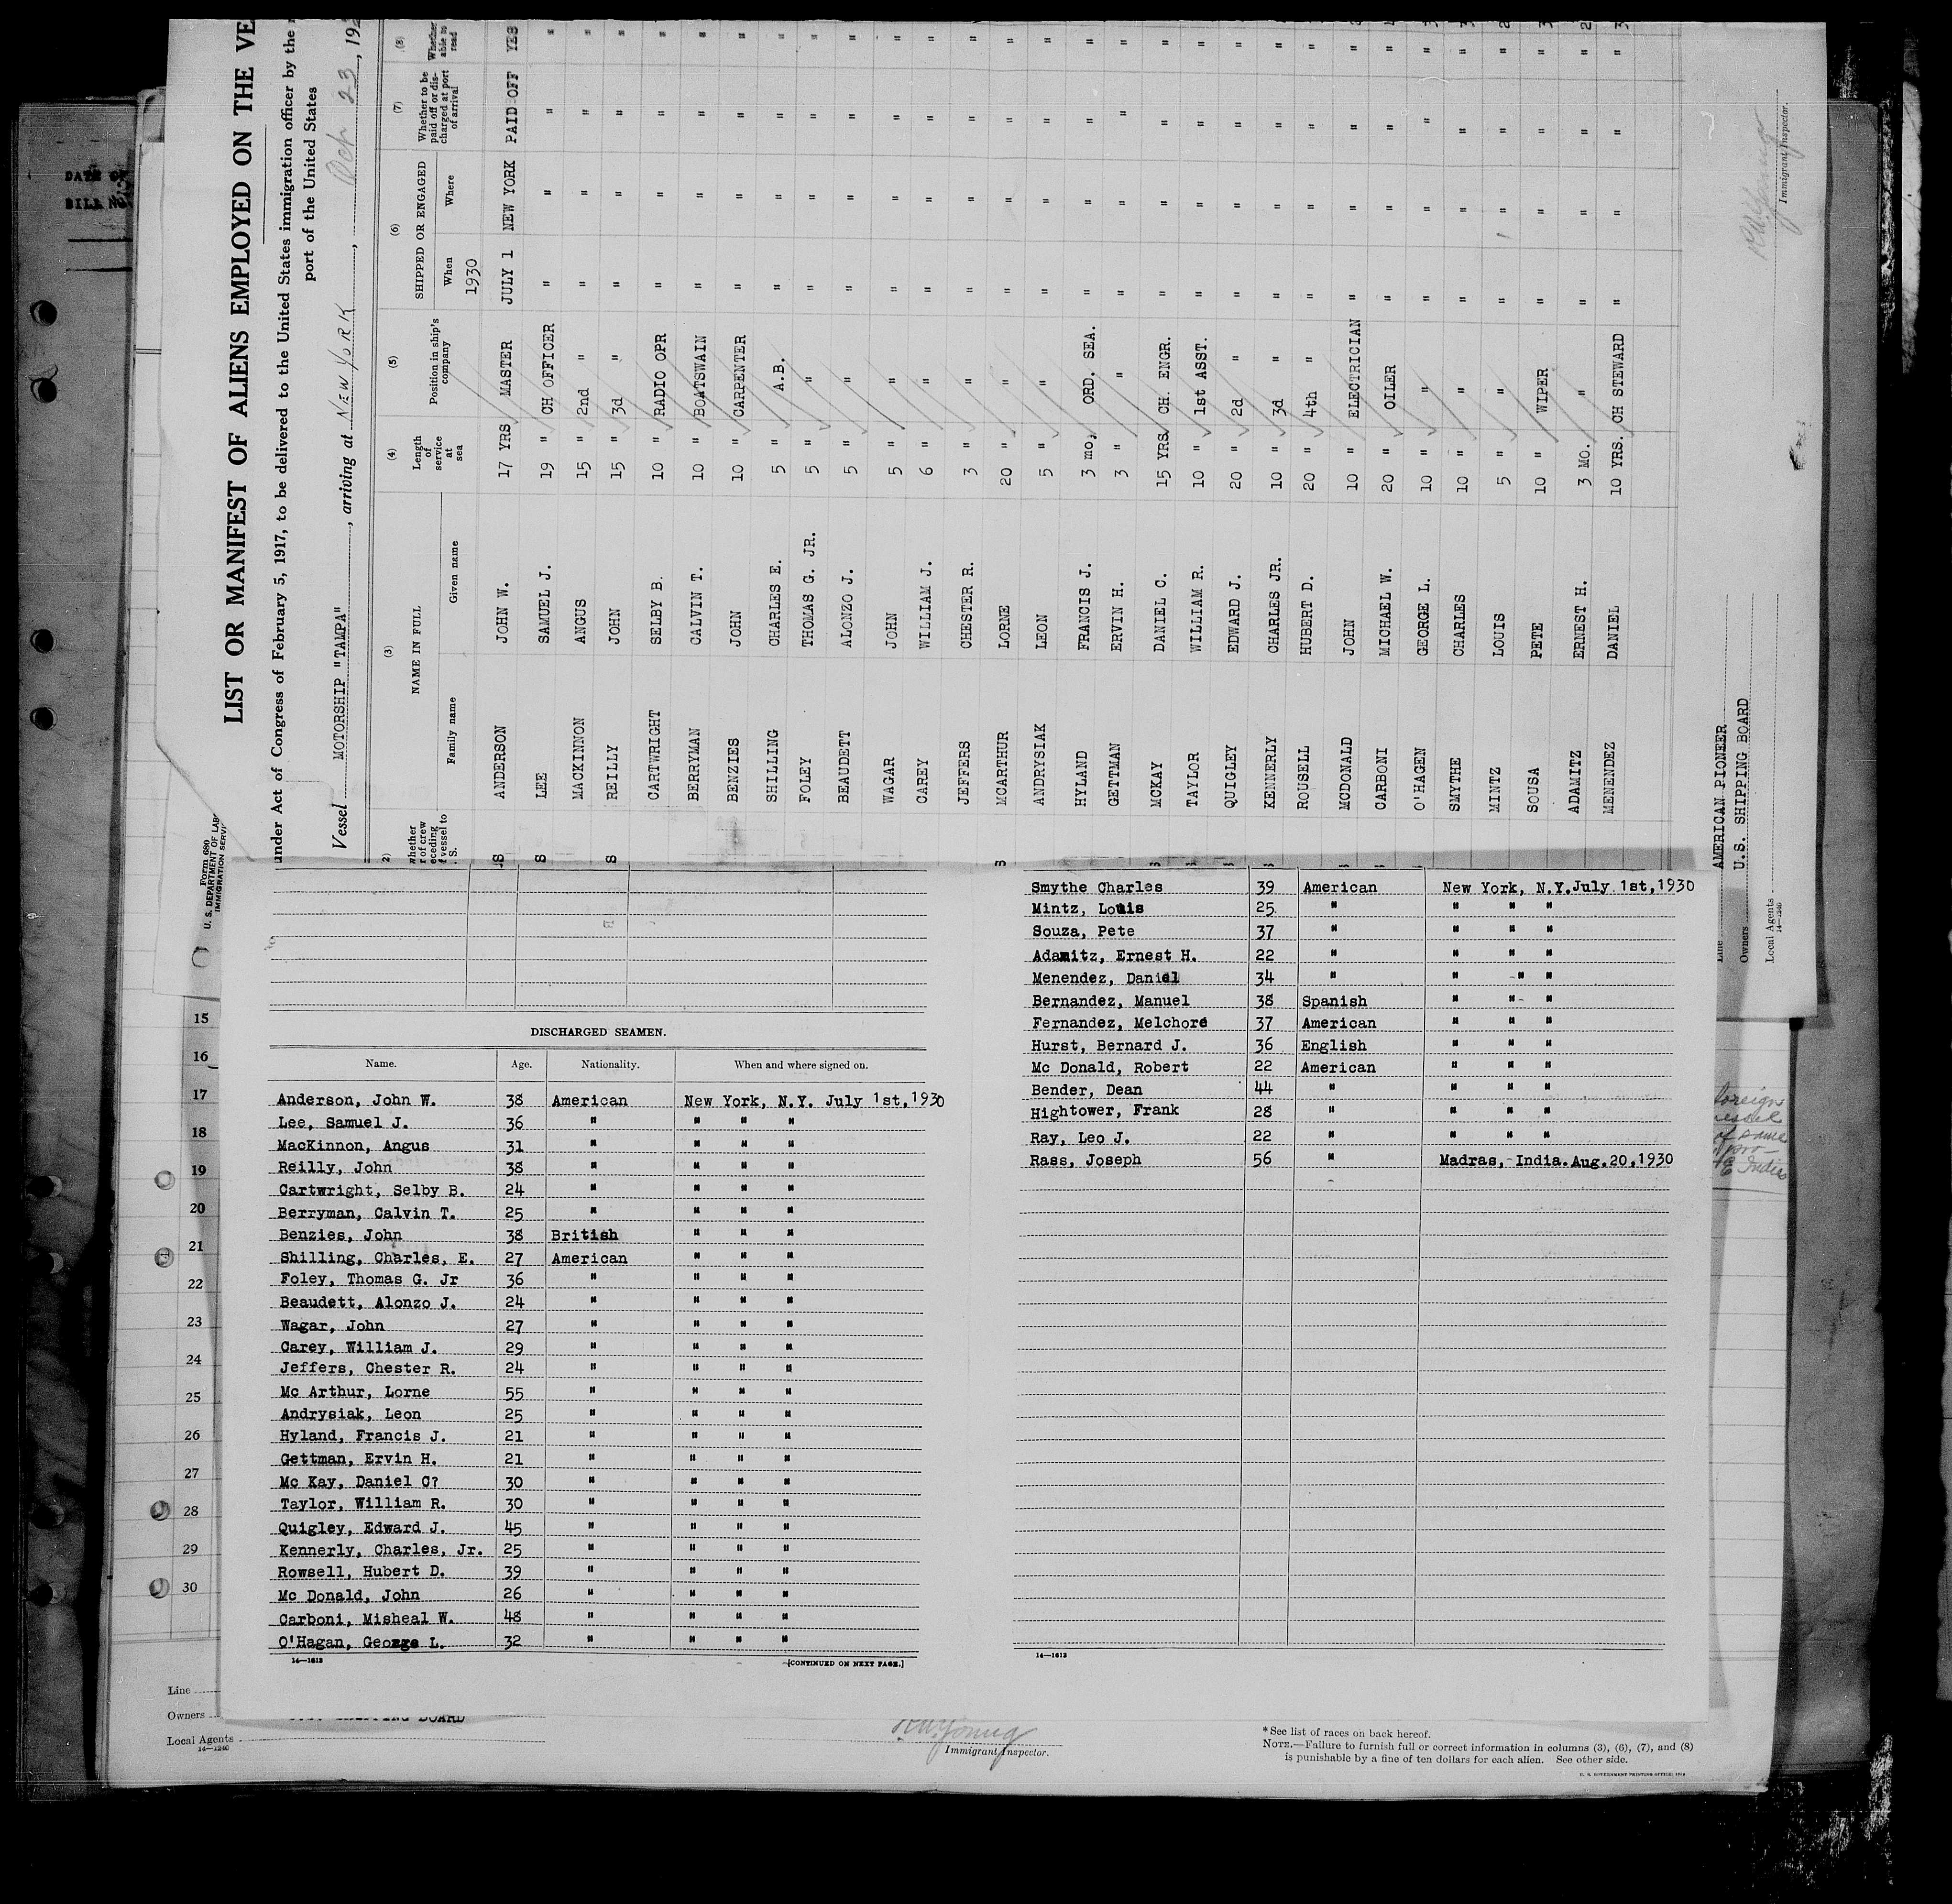 LIST OR MANIFEST OF ALIENS EMPLOYED ON THE VE
under Act of Congress of February 5, 1917, to be delivered to the United States immigration officer by the
port of the United States
Vessel MOTORSHIP "TAMPA", arriving at NEW YORK, 23, 192
(3) (4) (5) (6) (7) (8)
NAME IN FULL Length of service at sea Position in ship's company SHIPPED OR ENGAGED Whether to be paid off or discharged at port of arrival Whether able to read
Family name Given name When Where
1930
ANDERSON JOHN W. 17 YRS MASTER JULY 1 NEW YORK PAID OFF YES
LEE SAMUEL J. 19 " CH OFFICER " " " "
MACKINNON ANGUS 15 " 2nd " " " " "
REILLY JOHN 15 " 3d " " " " "
CARTWRIGHT SELBY B. 10 " RADIO OPR " " " "
BERRYMAN CALVIN T. 10 " BOATSWAIN " " " "
BENZIES JOHN 10 " CARPENTER " " " "
SHILLING CHARLES E. 5 " A.B. " " " "
FOLEY THOMAS G. JR. 5 " " " " " "
BEAUDETT ALONZO J. 5 " " " " " "
WAGAR JOHN 5 " " " " " "
CAREY WILLIAM J. 6 " " " " " "
JEFFERS CHESTER R. 3 " " " " " "
MCARTHUR LORNE 20 " " " " " "
ANDRYSIAK LEON 5 " " " " " "
HYLAND FRANCIS J. 3 mo, ORD. SEA. " " " "
GETTMAN ERVIN H. 3 " " " " " "
MCKAY DANIEL C. 15 YRS CH. ENGR. " " " "
TAYLOR WILLIAM R. 10 " 1st ASST. " " " "
QUIGLEY EDWARD J. 20 " 2d " " " " "
KENNERLY CHARLES JR. 10 " 3d " " " " "
ROUSELL HUBERT D. 20 " 4th " " " " "
MCDONALD JOHN 10 " ELECTRICIAN " " " "
CARBONI MICHAEL W. 20 " OILER " " " "
O'HAGEN GEORGE L. 10 " " " " " "
SMYTHE CHARLES 10 " " " " " "
MINTZ LOUIS 5 " " " " " "
SOUSA PETE 10 " WIPER " " " "
ADAMITZ ERNEST H. 3 MO. " " " " "
MENENDEZ DANIEL 10 YRS. CH STEWARD " " " "
Immigrant Inspector.
AMERICAN PIONEER
Owners U.S. SHIPPING BOARD
Local Agents
14—1240
Form 680
U. S. DEPARTMENT OF LAB
IMMIGRATION SERV
DISCHARGED SEAMEN.
Name. Age. Nationality. When and where signed on.
Anderson, John W. 38 American New York, N.Y. July 1st, 1930
Lee, Samuel J. 36 " " " "
MacKinnon, Angus 31 " " " "
Reilly, John 38 " " " "
Cartwright, Selby B. 24 " " " "
Berryman, Calvin T. 25 " " " "
Benzies, John 38 British " " "
Shilling, Charles, E. 27 American " " "
Foley, Thomas G. Jr 36 " " " "
Beaudett, Alonzo J. 24 " " " "
Wagar, John 27 " " " "
Carey, William J. 29 " " " "
Jeffers, Chester R. 24 " " " "
Mc Arthur, Lorne 55 " " " "
Andrysiak, Leon 25 " " " "
Hyland, Francis J. 21 " " " "
Gettman, Ervin H. 21 " " " "
Mc Kay, Daniel C? 30 " " " "
Taylor, William R. 30 " " " "
Quigley, Edward J. 45 " " " "
Kennerly, Charles, Jr. 25 " " " "
Rowsell, Hubert D. 39 " " " "
Mc Donald, John 26 " " " "
Carboni, Misheal W. 48 " " " "
O'Hagan, George L. 32 " " " "
14—1613 [CONTINUED ON NEXT PAGE.]
Smythe Charles 39 American New York, N.Y. July 1st, 1930
Mintz, Louis 25 " " " "
Souza, Pete 37 " " " "
Adamitz, Ernest H. 22 " " " "
Menendez, Daniel 34 " " " "
Bernandez, Manuel 38 Spanish " " "
Fernandez, Melchore 37 American " " "
Hurst, Bernard J. 36 English " " "
Mc Donald, Robert 22 American " " "
Bender, Dean 44 " " " "
Hightower, Frank 28 " " " "
Ray, Leo J. 22 " " " "
Rass, Joseph 56 " Madras, India. Aug. 20, 1930
14—1613
15
16
17
18
19
20
21
22
23
24
25
26
27
28
29
30
Line
Owners
Local Agents
14—1240
Immigrant Inspector.
*See list of races on back hereof.
NOTE.—Failure to furnish full or correct information in columns (3), (6), (7), and (8)
is punishable by a fine of ten dollars for each alien. See other side.